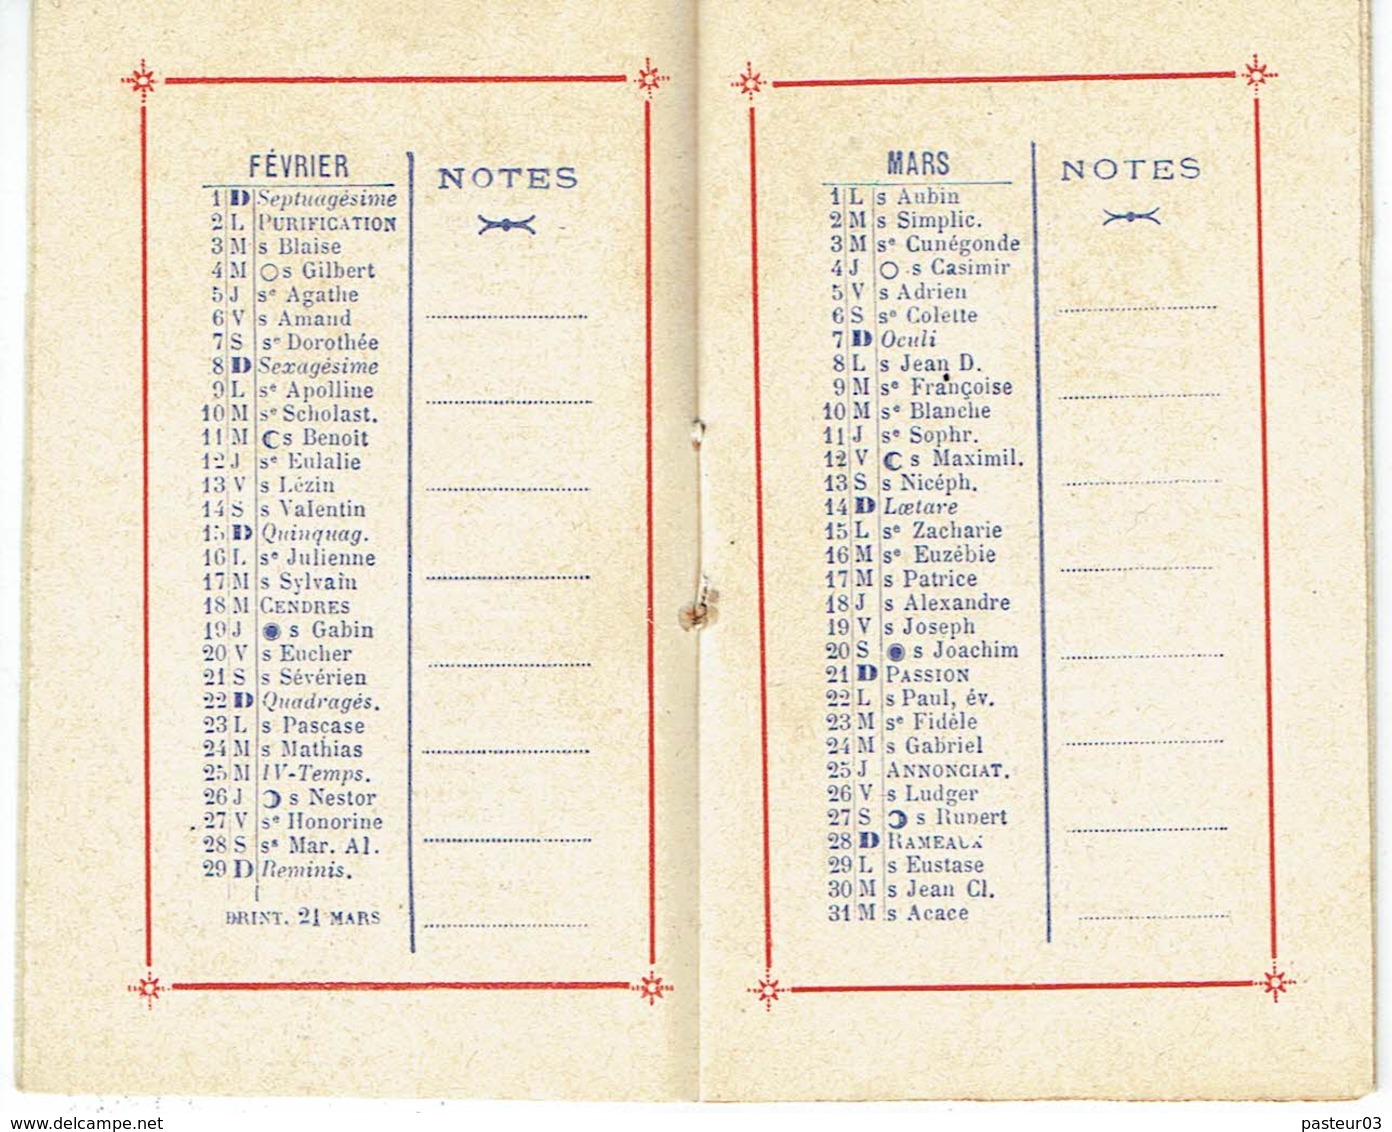 FÉVRIER
1 D Septuagésime
2 L PURIFICATION
3 M s Blaise
4 M ○ s Gilbert
5 J sᵉ Agathe
6 V s Amand
7 S sᵉ Dorothée
8 D Sexagésime
9 L sᵉ Apolline
10 M sᵉ Scholast.
11 M ☾ s Benoit
12 J sᵉ Eulalie
13 V s Lézin
14 S s Valentin
15 D Quinquag.
16 L sᵉ Julienne
17 M s Sylvain
18 M CENDRES
19 J ● s Gabin
20 V s Eucher
21 S s Sévérien
22 D Quadragés.
23 L s Pascase
24 M s Mathias
25 M IV-Temps.
26 J ☽ s Nestor
27 V sᵉ Honorine
28 S sˢ Mar. Al.
29 D Reminis.
PRINT. 21 MARS
NOTES
MARS
1 L s Aubin
2 M s Simplic.
3 M sᵉ Cunégonde
4 J ○ s Casimir
5 V s Adrien
6 S sᵉ Colette
7 D Oculi
8 L s Jean D.
9 M sᵉ Françoise
10 M sᵉ Blanche
11 J sᵉ Sophr.
12 V ☾ s Maximil.
13 S s Nicéph.
14 D Lœtare
15 L sᵉ Zacharie
16 M sᵉ Euzébie
17 M s Patrice
18 J s Alexandre
19 V s Joseph
20 S ● s Joachim
21 D PASSION
22 L s Paul, év.
23 M sᵉ Fidèle
24 M s Gabriel
25 J ANNONCIAT.
26 V s Ludger
27 S ☽ s Rupert
28 D RAMEAUX
29 L s Eustase
30 M s Jean Cl.
31 M s Acace
NOTES
www.delcampe.net
pasteur03